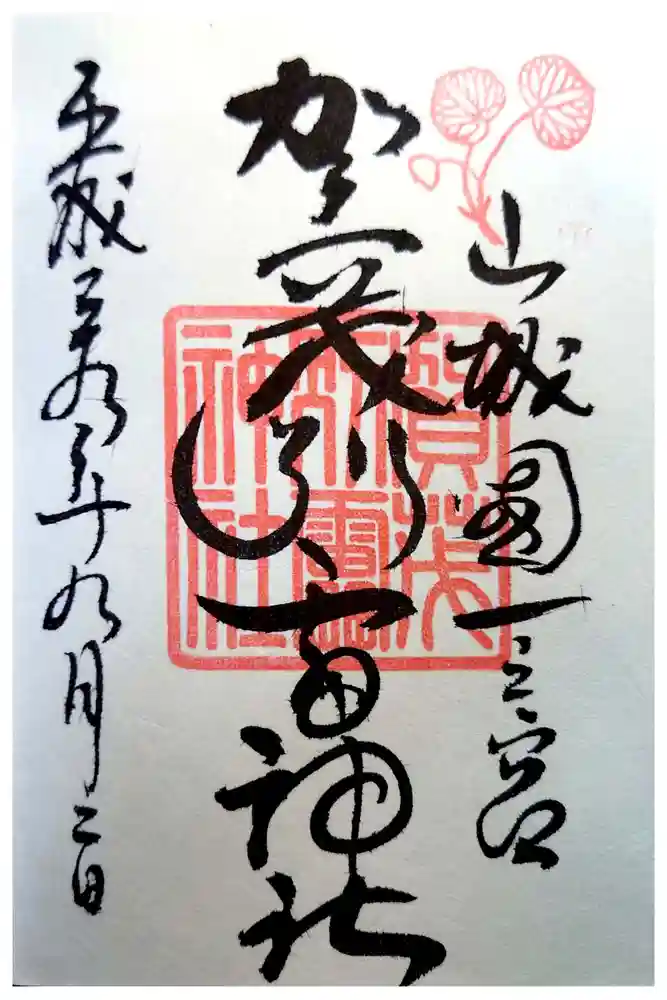 山城國一之宮
賀茂別雷神社
平成二十九年九月二日
賀茂
別雷
神社